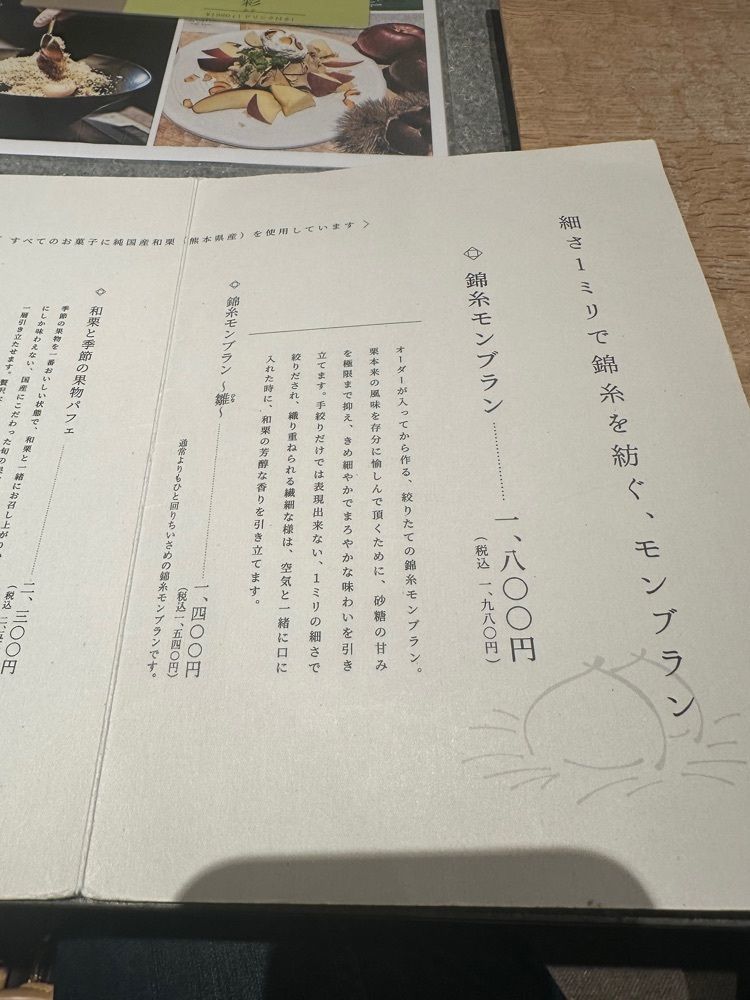 細さ1ミリで錦糸を紡ぐ、モンブラン
錦糸モンブラン 一、八〇〇円
（税込 一、九八〇円）
オーダーが入ってから作る、絞りたての錦糸モンブラン。
栗本来の風味を存分に愉しんで頂くために、砂糖の甘み
を極限まで抑え、きめ細やかでまろやかな味わいを引き
立てます。手絞りだけでは表現出来ない、1ミリの細さで
絞りだされ、織り重ねられる繊細な様は、空気と一緒に口に
入れた時に、和栗の芳醇な香りを引き立てます。
錦糸モンブラン 〜雛〜 一、四〇〇円
ひな
（税込 一、五四〇円）
通常よりもひと回りちいさめの錦糸モンブランです。
すべてのお菓子に純国産和栗（熊本県産）を使用しています 〉
和栗と季節の果物パフェ 二、三〇〇円
（税込 二、五
季節の果物を一番おいしい状態で、和栗と一緒にお召し上がり
にしか味わえない、国産にこだわった旬の果
一層引き立たせます。贅沢
彩